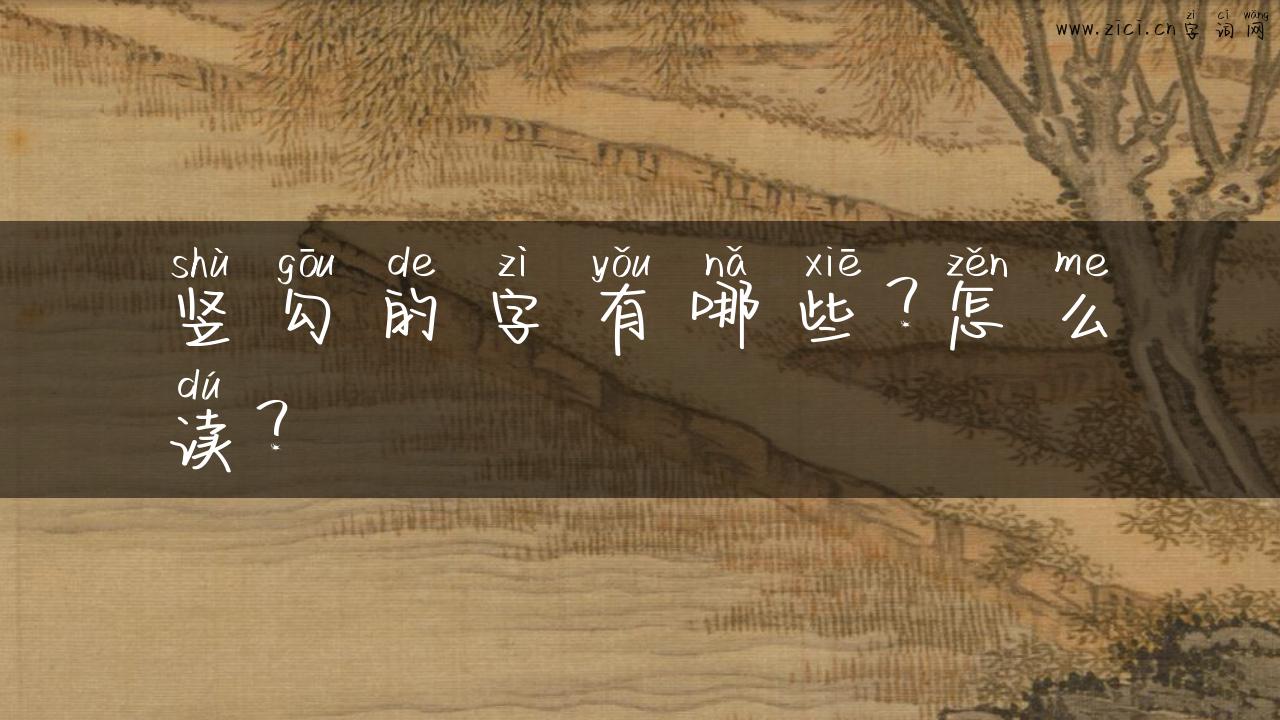 zì cí wǎng
www.zici.cn字词网
shù gōu de zì yǒu nǎ xiē zěn me
竖勾的字有哪些？怎么
dú
读？